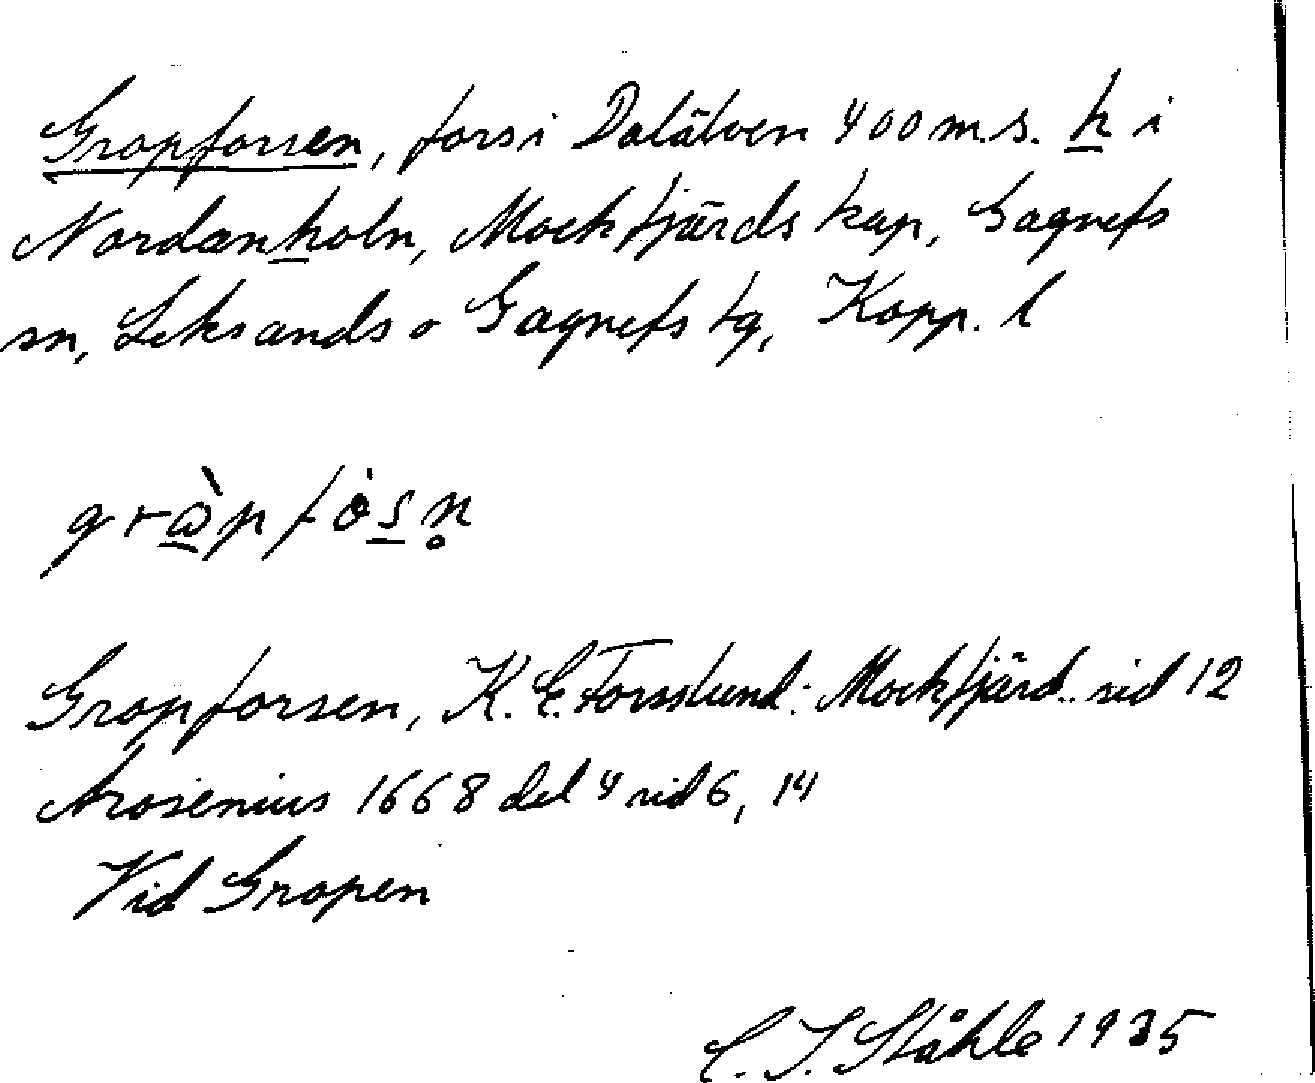 Gropforsen, fors i Dalälven 400 m. s. h i
Nordanholn, Mockfjärds kap, Gagnefs
sn, Leksands o Gagnefs tg, Kopp. l
Gropforsen, K. E. Forsslund: Mockfjärd.. sid 12
Arosenius 1668 del 4 sid 6, 14
Vid Gropen
C. I. Ståhle 1935